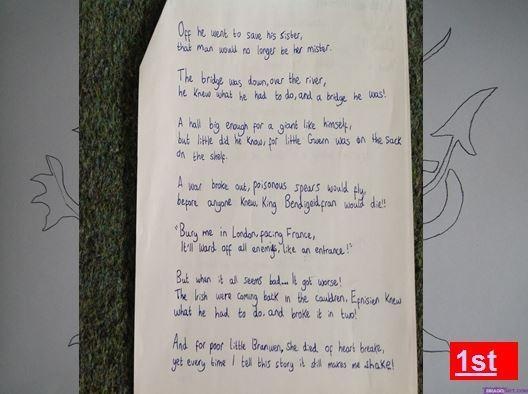 Off he went to save his sister,
that man would no longer be her mister.
The bridge was down, over the river,
he knew what he had to do, and a bridge he was!
A hall big enough for a giant like himself,
but little did he know, for little Gwern was on the sack
on the shelf.
A war broke out, poisonous spears would fly,
before anyone knew, King Bendigeidfran would die!!
"Bury me in London, facing France,
It'll ward off all enemys, like an entrance!"
But when it all seems bad.... It got worse!
The Irish were coming back in the cauldren, Efnisien knew
what he had to do, and broke it in two!
And for poor little Branwen, she died of heart breake,
yet every time I tell this story it still makes me shake!
1st